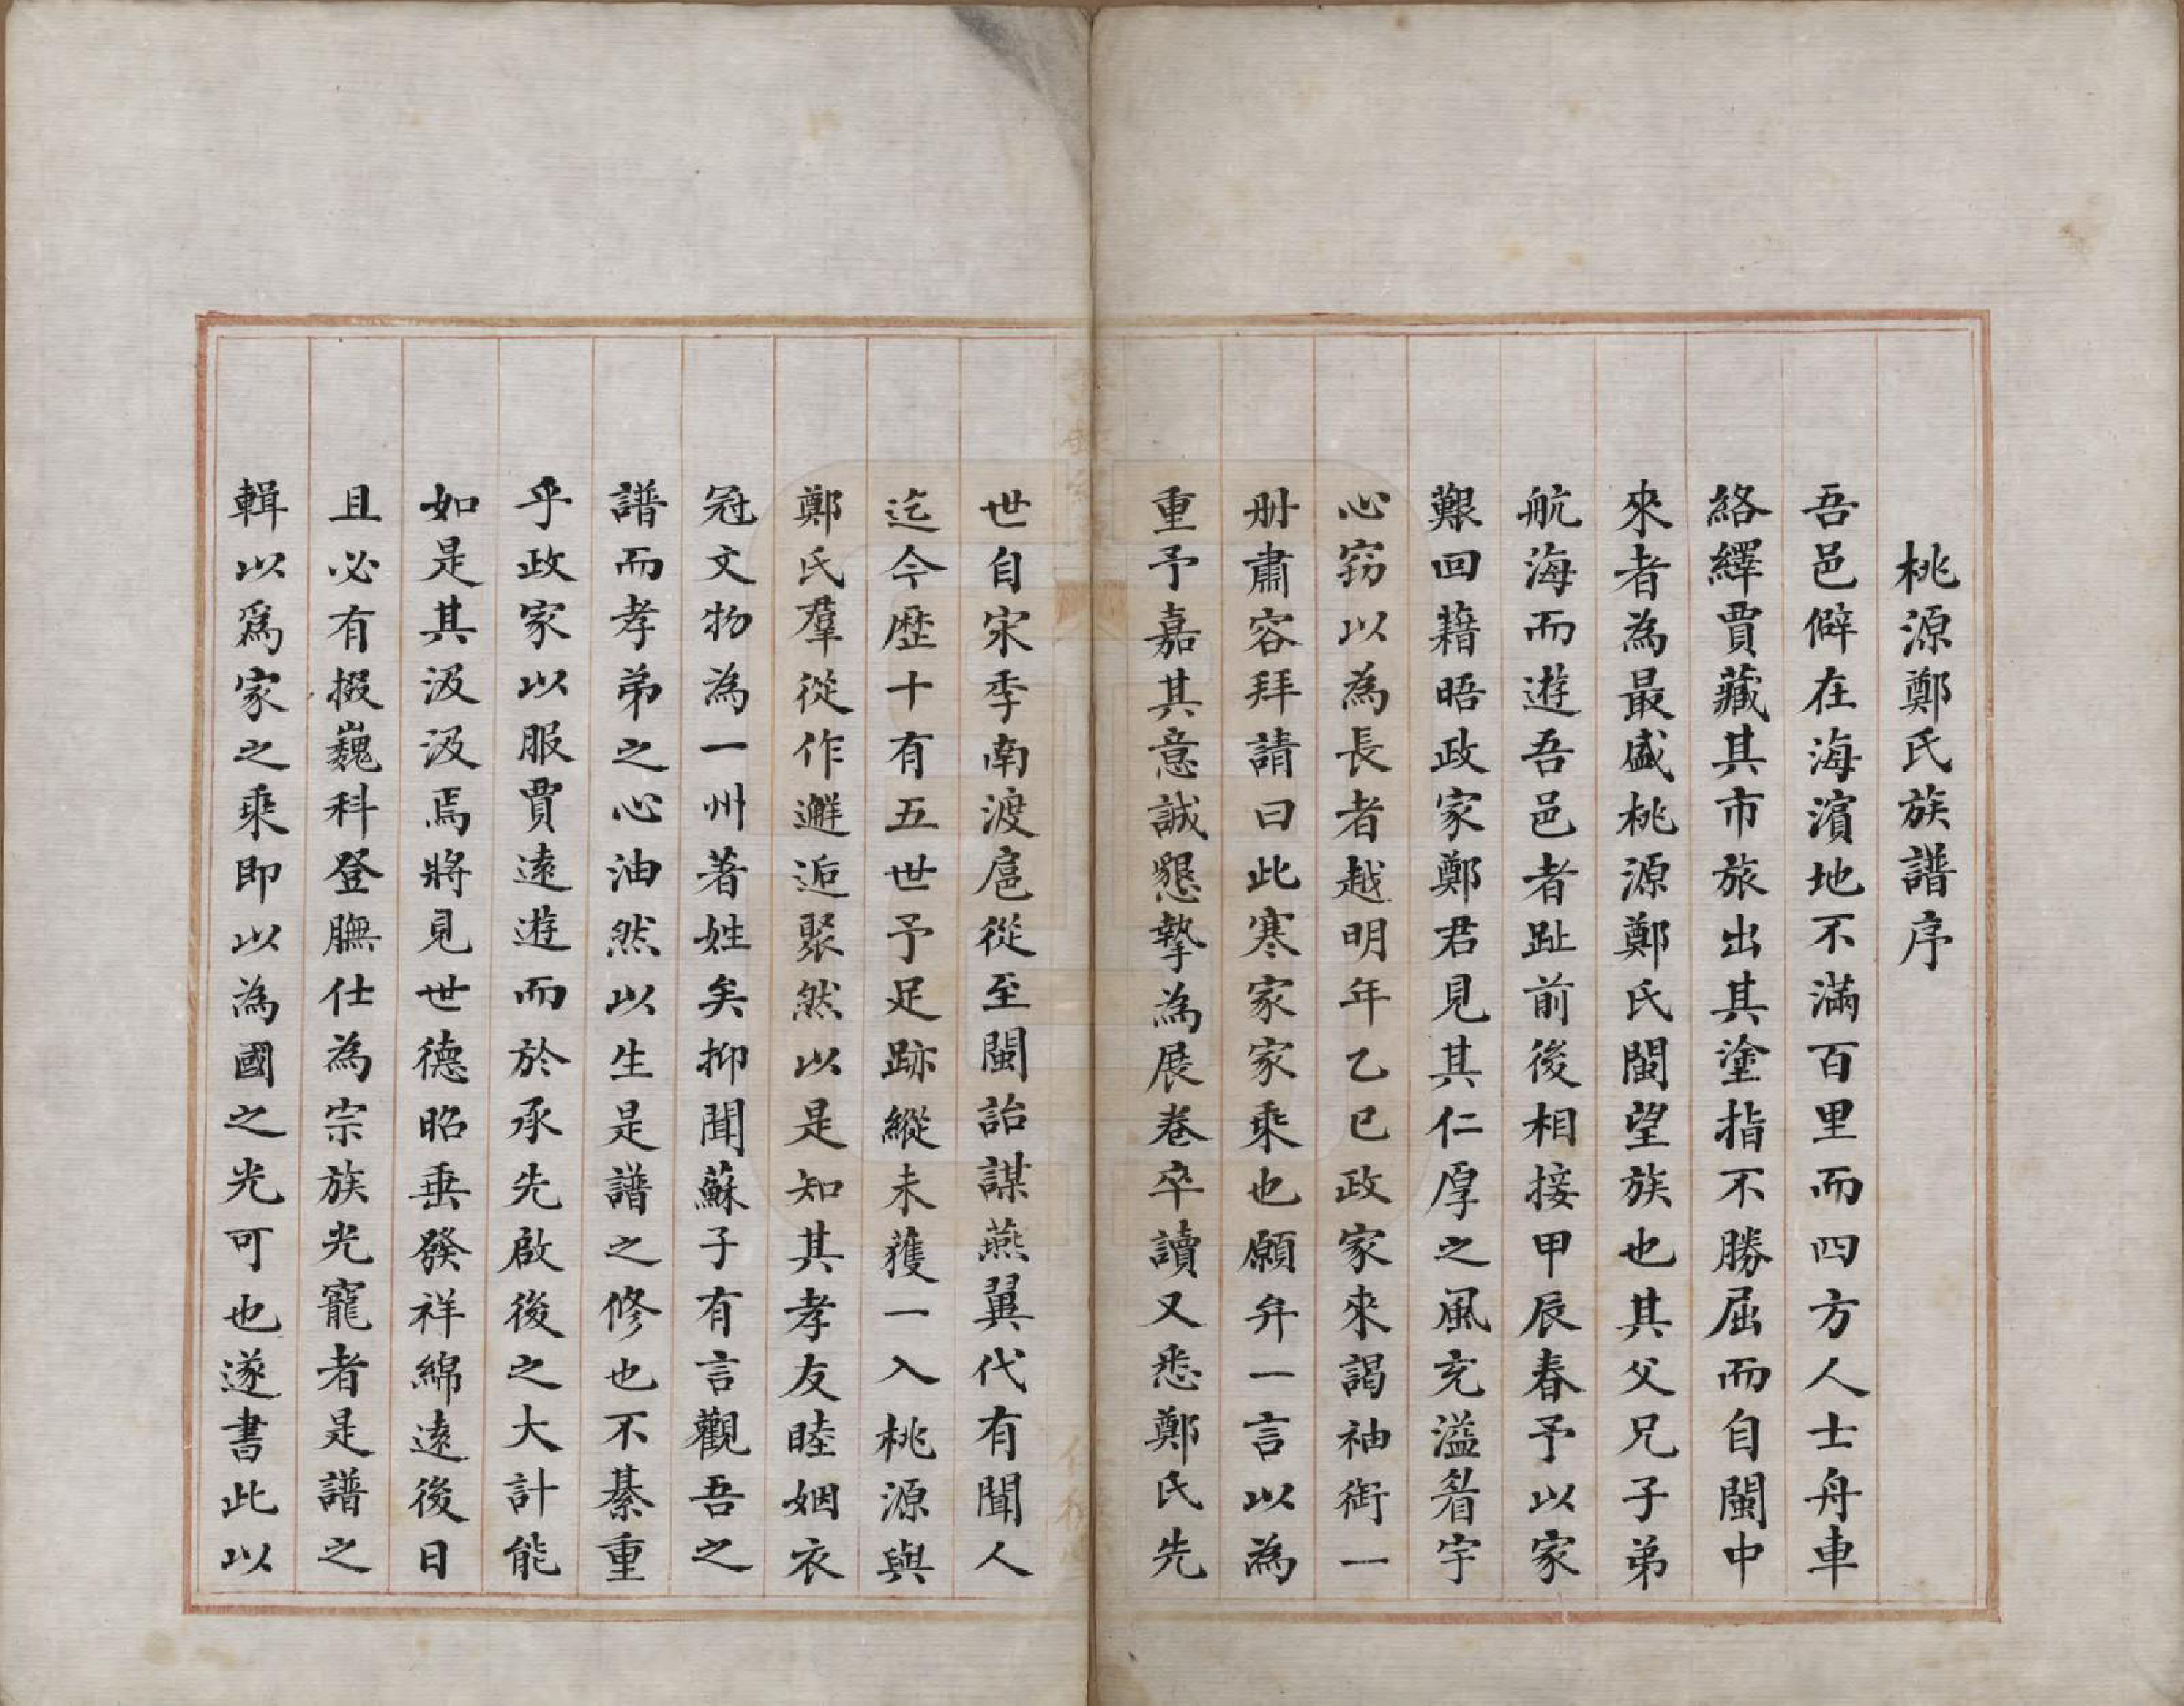 桃源鄭氏族譜序
吾邑僻在海濵地不滿百里而四方人士舟車
絡繹賈藏其市旅出其塗指不勝屈而自閩中
來者為最盛桃源鄭氏閩望族也其父兄子弟
航海而遊吾邑者趾前後相接甲辰春予以家
艱回籍晤政家鄭君見其仁厚之風充溢眉宇
心窃以為長者越明年乙巳政家來謁袖衘一
册肅容拜請曰此寒家家乘也願弁一言以為
重予嘉其意誠懇摯為展卷卒讀又悉鄭氏先
世自宋季南渡扈從至閩詒謀燕翼代有聞人
迄今歷十有五世予足跡縱未獲一入桃源與
鄭氏羣從作邂逅聚然以是知其孝友睦姻衣
冠文物為一州著姓矣抑聞蘇子有言觀吾之
譜而孝弟之心油然以生是譜之修也不綦重
乎政家以服賈遠遊而於承先啟後之大計能
如是其汲汲焉將見世德昭垂發祥綿遠後日
且必有掇巍科登膴仕為宗族光寵者是譜之
輯以爲家之乘即以為國之光可也遂書此以